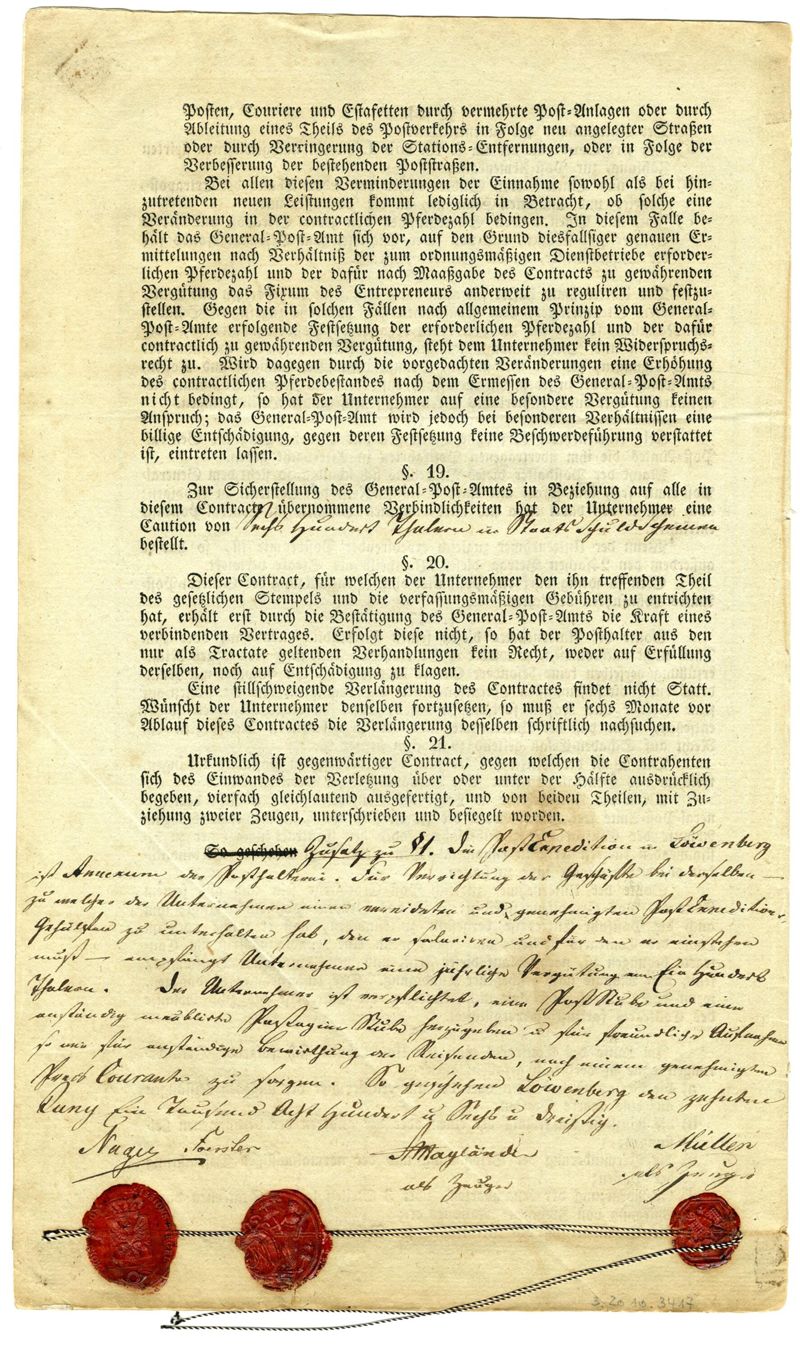 Posten, Couriere und Estafetten durch vermehrte Post-Anlagen oder durch
Ableitung eines Theils des Postverkehrs in Folge neu angelegter Straßen
oder durch Verringerung der Stations-Entfernungen, oder in Folge der
Verbesserung der bestehenden Poststraßen.
Bei allen diesen Verminderungen der Einnahme sowohl als bei hin-
zutretenden neuen Leistungen kommt lediglich in Betracht, ob solche eine
Veränderung in der contractlichen Pferdezahl bedingen. In diesem Falle be-
hält das General-Post-Amt sich vor, auf den Grund diesfallsiger genauen Er-
mittelungen nach Verhältniß der zum ordnungsmäßigen Dienstbetriebe erforder-
lichen Pferdezahl und der dafür nach Maaßgabe des Contracts zu gewährenden
Vergütung das Fixum des Entrepreneurs anderweit zu reguliren und festzu-
stellen. Gegen die in solchen Fällen nach allgemeinem Prinzip vom General-
Post-Amte erfolgende Festsetzung der erforderlichen Pferdezahl und der dafür
contractlich zu gewährenden Vergütung, steht dem Unternehmer kein Widerspruchs-
recht zu. Wird dagegen durch die vorgedachten Veränderungen eine Erhöhung
des contractlichen Pferdebestandes nach dem Ermessen des General-Post-Amts
nicht bedingt, so hat der Unternehmer auf eine besondere Vergütung keinen
Anspruch; das General-Post-Amt wird jedoch bei besonderen Verhältnissen eine
billige Entschädigung, gegen deren Festsetzung keine Beschwerdeführung verstattet
ist, eintreten lassen.
§. 19.
Zur Sicherstellung des General-Post-Amtes in Beziehung auf alle in
diesem Contracte übernommene Verbindlichkeiten hat der Unternehmer eine
Caution von Sechs Hundert Thalern in Staats Schuldscheinen
bestellt.
§. 20.
Dieser Contract, für welchen der Unternehmer den ihn treffenden Theil
des gesetzlichen Stempels und die verfassungsmäßigen Gebühren zu entrichten
hat, erhält erst durch die Bestätigung des General-Post-Amts die Kraft eines
verbindenden Vertrages. Erfolgt diese nicht, so hat der Posthalter aus den
nur als Tractate geltenden Verhandlungen kein Recht, weder auf Erfüllung
derselben, noch auf Entschädigung zu klagen.
Eine stillschweigende Verlängerung des Contractes findet nicht Statt.
Wünscht der Unternehmer denselben fortzusetzen, so muß er sechs Monate vor
Ablauf dieses Contractes die Verlängerung desselben schriftlich nachsuchen.
§. 21.
Urkundlich ist gegenwärtiger Contract, gegen welchen die Contrahenten
sich des Einwandes der Verletzung über oder unter der Hälfte ausdrücklich
begeben, vierfach gleichlautend ausgefertigt, und von beiden Theilen, mit Zu-
ziehung zweier Zeugen, unterschrieben und besiegelt worden.
So geschehen Zusatz zu §1. Die Post Expedition in Löwenberg
ist Annexum der Posthalterei. Für Verrichtung der Geschäfte bei derselben –
zu welcher der Unternehmer einen vereideten und genehmigten Post Expeditions
Gehülfen zu unterhalten hat, den er salariren und für den er einstehen
muß – empfängt Unternehmer eine jährliche Vergütung von Ein Hundert
Thalern. Der Unternehmer ist verpflichtet, eine Post Stube und eine
anständig meublirte Passagier Stube herzugeben u für freundliche Aufnahme
so wie für anständige Bewirthung der Reisenden, nach einem genehmigten
Preis Courante zu sorgen. So geschehen Löwenberg den zehnten
Juny Ein Tausend Acht Hundert u Sechs u dreißig.
Foerster Müller
als Zeuge als Zeuge
3.20 10.3417